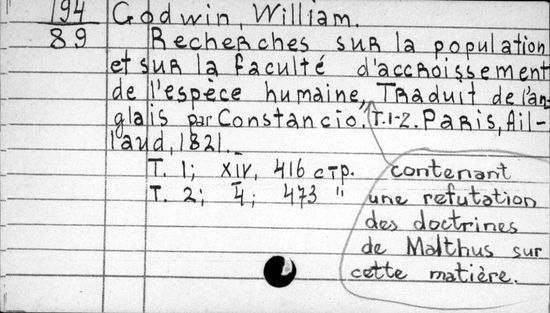 194
89
Godwin, William.
Recherches sur la population
et sur la faculté d'accroissement
de l'espèce humaine, Traduit de l'an-
glais par Constancio. T.1-2. Paris, Ail-
laud, 1821.
T. 1; XIV, 416 стр.
T. 2; 4; 473 "
contenant
une refutation
des doctrines
de Malthus sur
cette matière.